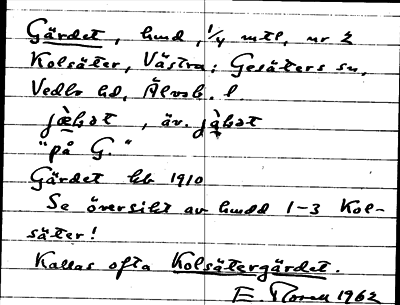 Gärdet, hmd, 1/4 mtl, nr 2
Kolsäter, Västra; Gesäters sn,
Vedbo hd, Älvsb. l.
jæ̀ḷət, äv. jàḷət
"på G."
Gärdet kb 1910
Se översikt av hmdd 1-3 Kol-
säter!
Kallas ofta Kolsätergärdet.
E. 1962